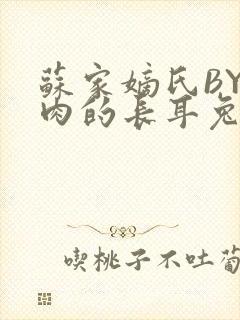 蘇家嫡氏BY
肉的長耳兔
喫桃子不吐葡